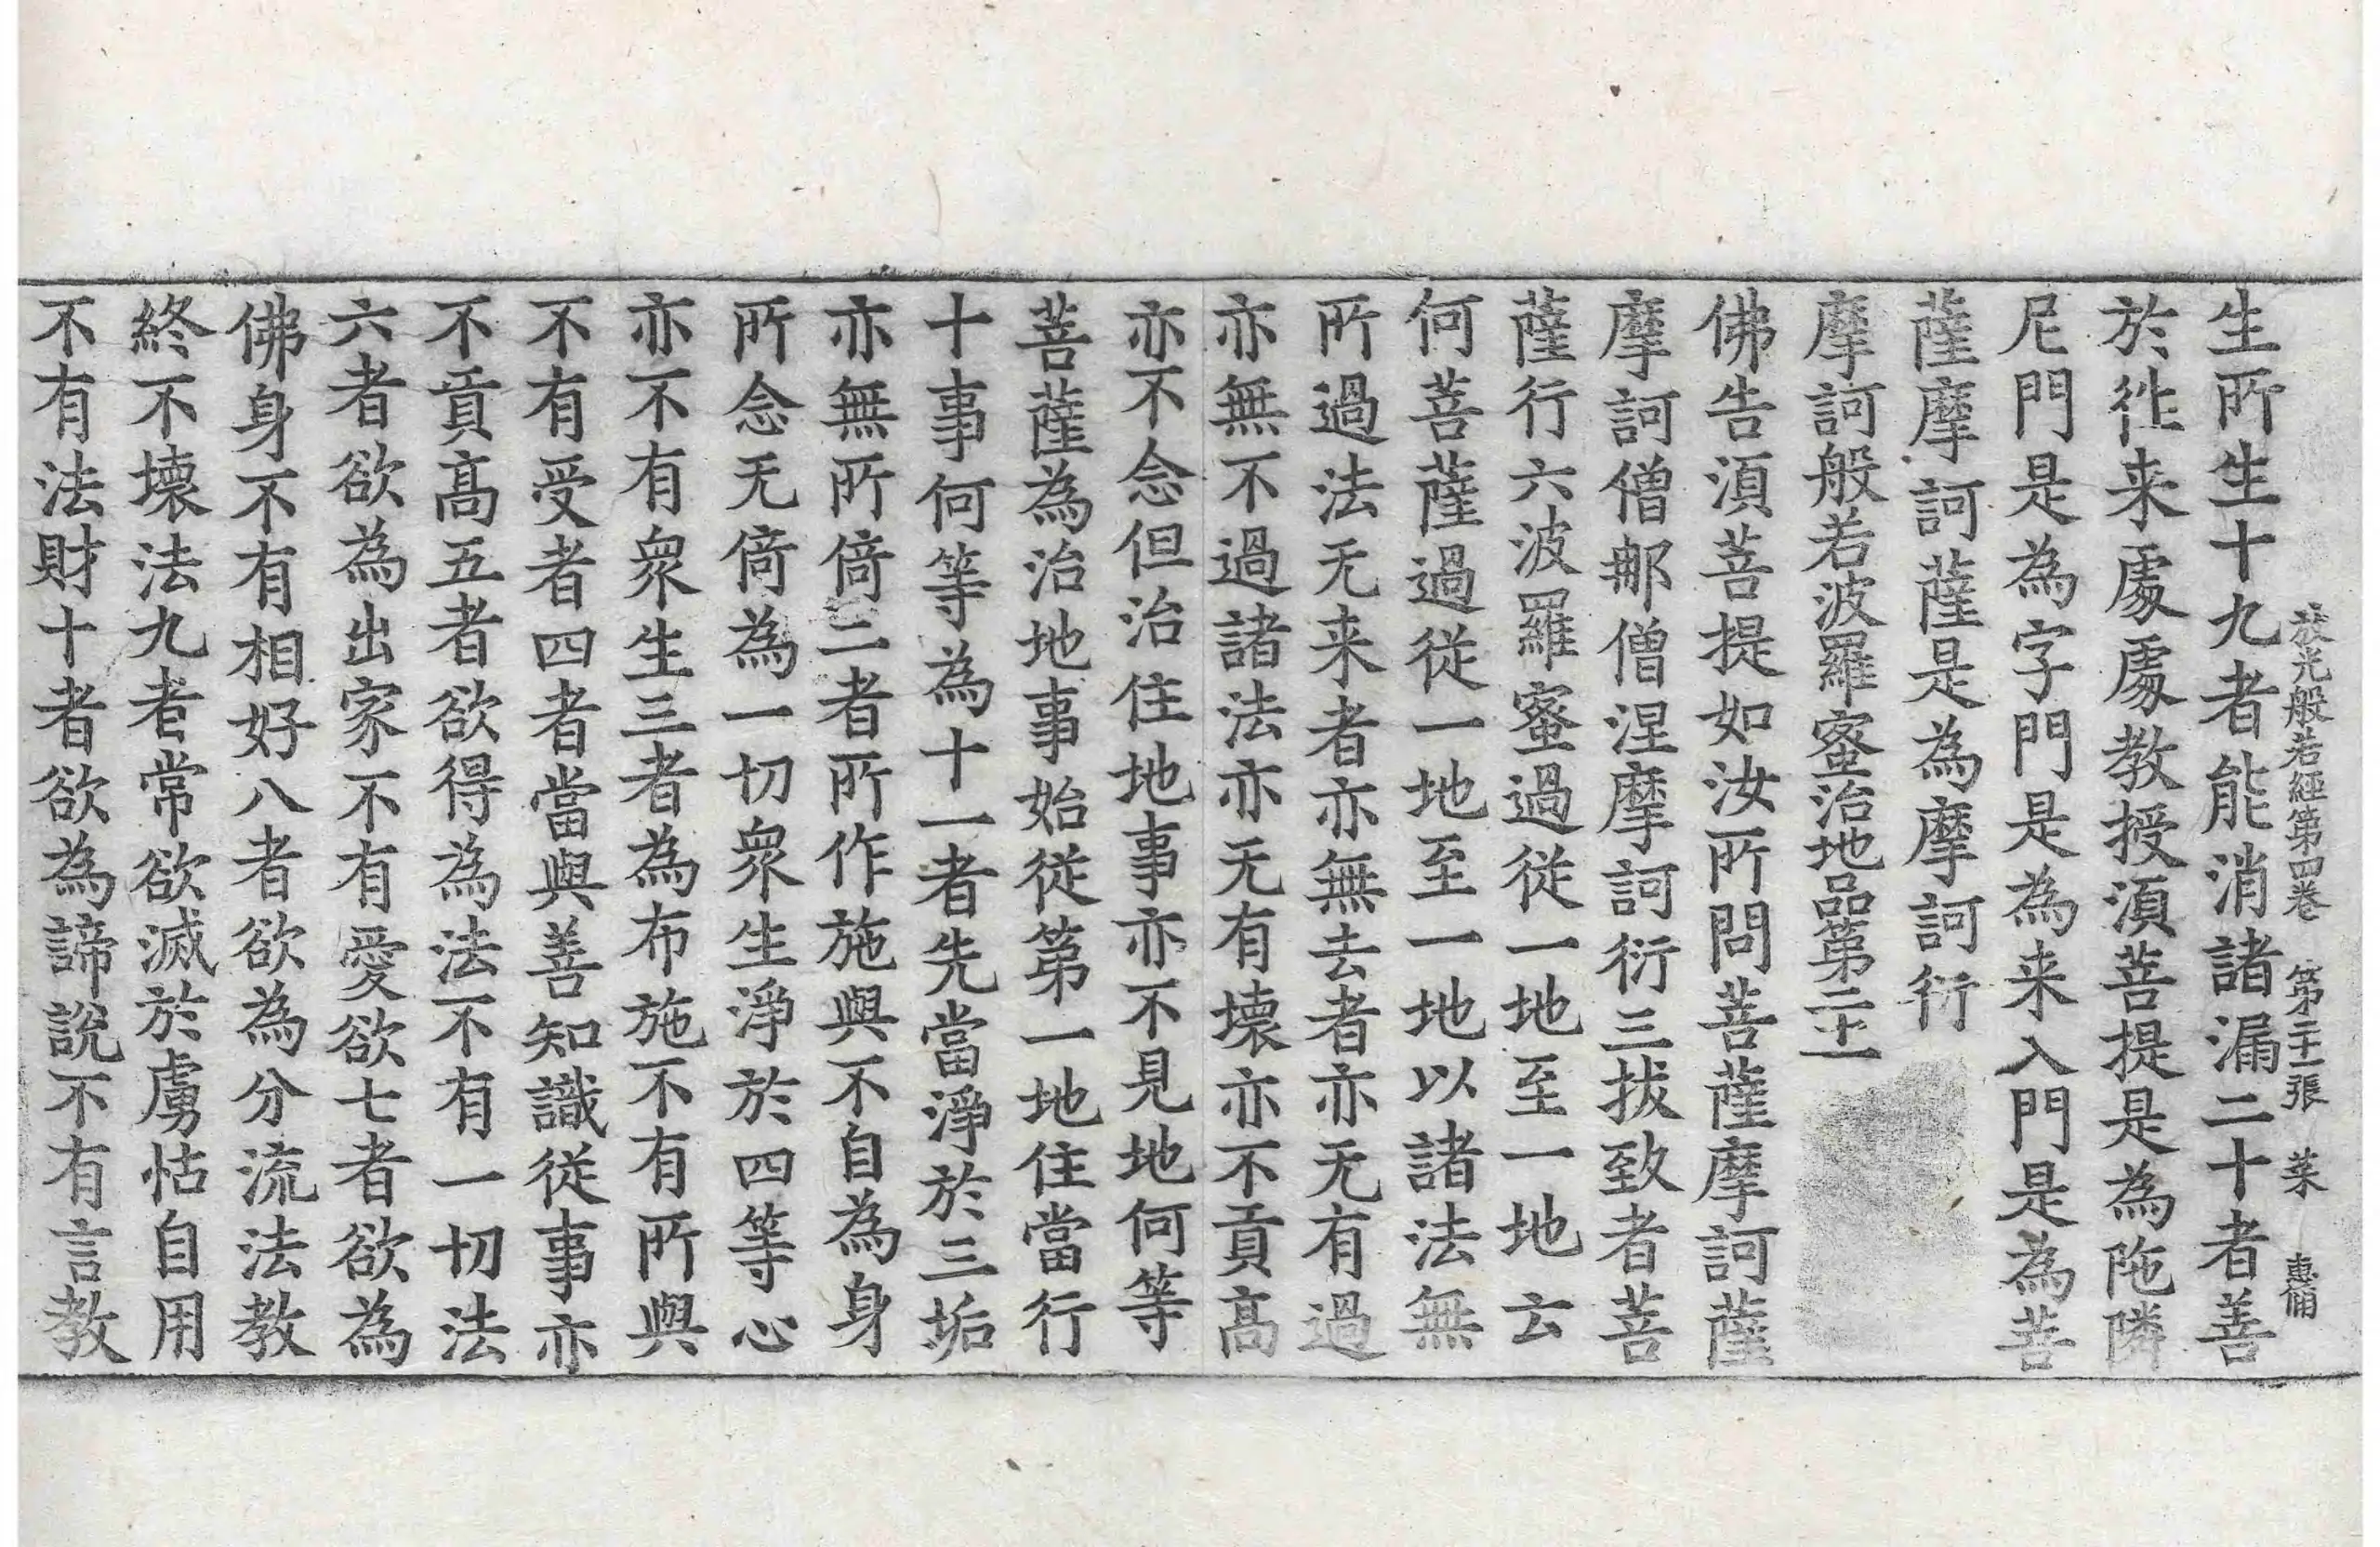 放光般若經第四卷 第二十一張 菜 惠備
生所生十九者能消諸漏二十者善
於徃来處處教授湏菩提是為陁隣
尼門是為字門是為来入門是為菩
薩摩訶薩是為摩訶衍
摩訶般若波羅蜜治地品第二十一
佛告湏菩提如汝所問菩薩摩訶薩
摩訶僧那僧涅摩訶衍三拔致者菩
薩行六波羅蜜過從一地至一地云
何菩薩過從一地至一地以諸法無
所過法无来者亦無去者亦无有過
亦無不過諸法亦无有壞亦不貢高
亦不念但治住地事亦不見地何等
菩薩為治地事始從第一地住當行
十事何等為十一者先當淨於三垢
亦無所倚二者所作施與不自為身
所念无倚為一切衆生淨於四等心
亦不有衆生三者為布施不有所與
不有受者四者當與善知識從事亦
不貢高五者欲得為法不有一切法
六者欲為出家不有愛欲七者欲為
佛身不有相好八者欲為分流法教
終不壞法九者常欲滅於虜怙自用
不有法財十者欲為諦說不有言教